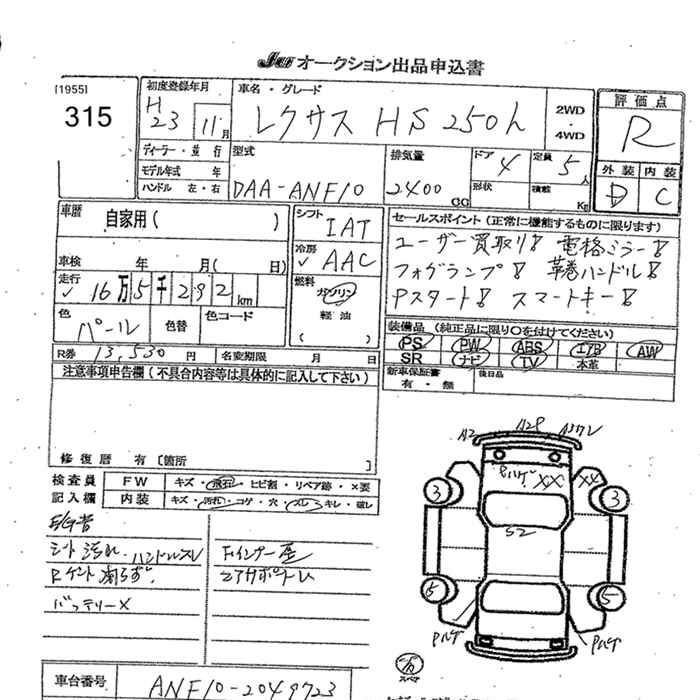 JAA オークション出品申込書
[1955]
315
初度登録年月
H 23 11月
車名・グレード
レクサス HS250h
2WD
・
4WD
評価点
R
外装 内装
D C
ディーラー・並行
モデル年式 年
ハンドル 左・右
型式
DAA-ANF10
排気量
2400 CC
ドア 4
形状
定員 5人
積載 Kg
車歴 自家用( )
シフト IAT
冷房 AAC
燃料
ガソリン
軽油
( )
車検 年 月( 日)
走行 16万5千292km
色 パール
色替
色コード
R券 13,530円 名変期限 月 日
セールスポイント(正常に機能するものに限ります)
ユーザー買取り! 電格ミラー!
フォグランプ! 革巻ハンドル!
Pスタート! スマートキー!
装備品 (純正品に限り○を付けてください)
PS PW ABS エアB AW
SR ナビ TV 本革
新車保証書 有・無
後日品
注意事項申告欄(不具合内容等は具体的に記入して下さい)
修復歴 有〔箇所 〕
検査員 FW キズ・飛石・ヒビ割・リペア跡・×要
記入欄 内装 キズ・汚れ・コゲ・穴・スレ・キレ・破レ
シート汚れ、ハンドルスレ
バッテリー×
A2 A2P
Pハゲ XX X4
3 3
S2
5 5
Pハゲ Pハゲ
スペア
車台番号 ANF10-2049723